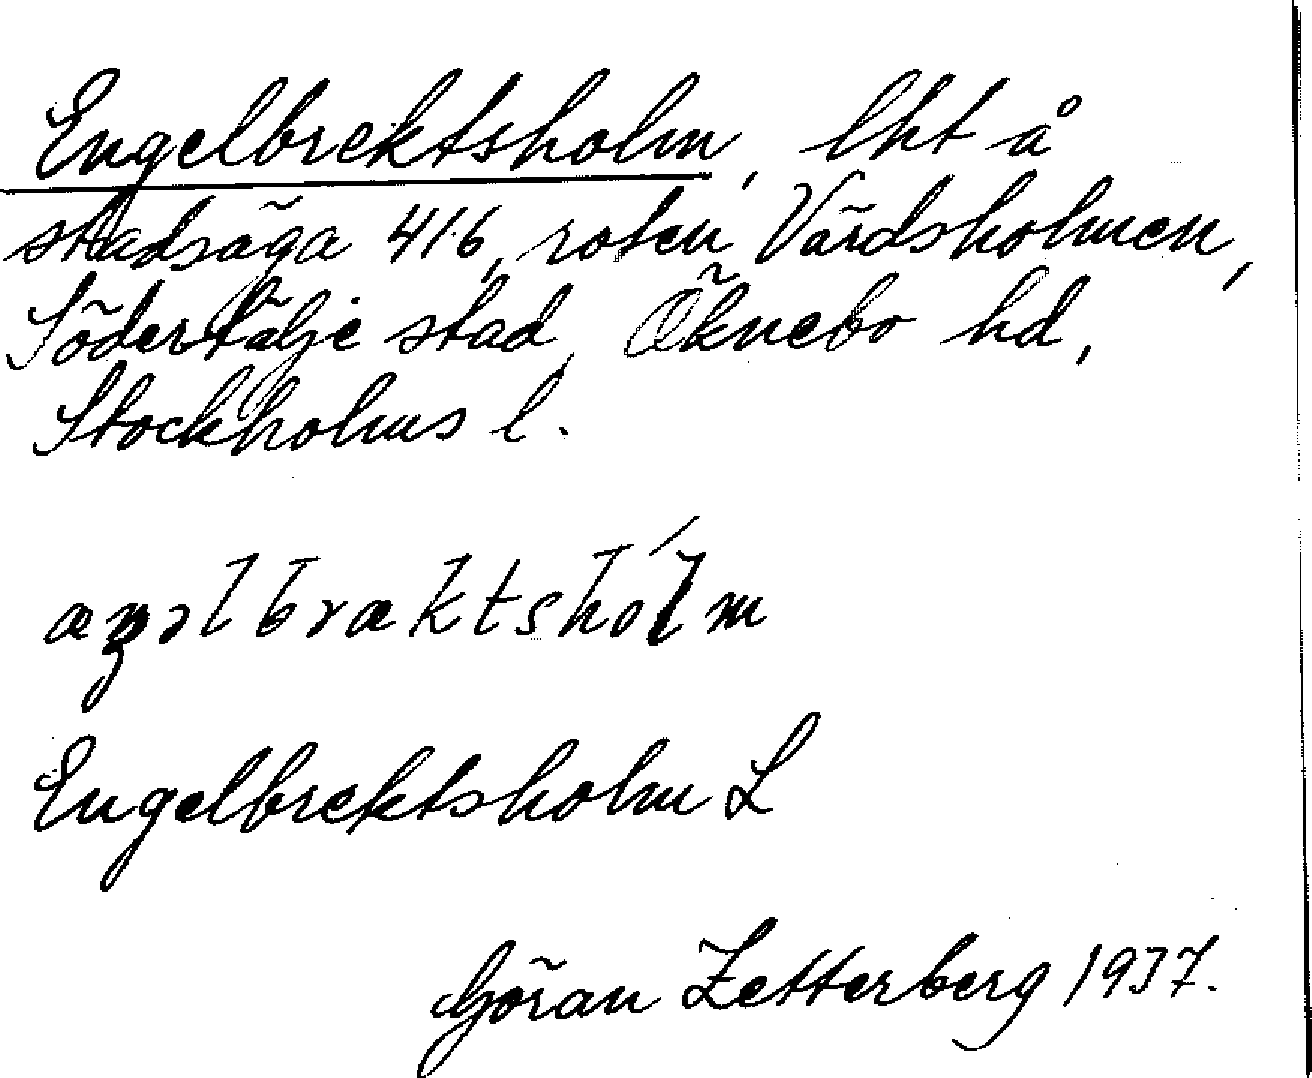 Engelbrektsholm, lht å
stadsäga 416, roten Värdsholmen,
Södertälje stad, Öknebo hd,
Stockholms l.
Engelbrektsholm L
Göran Zetterberg 1937.